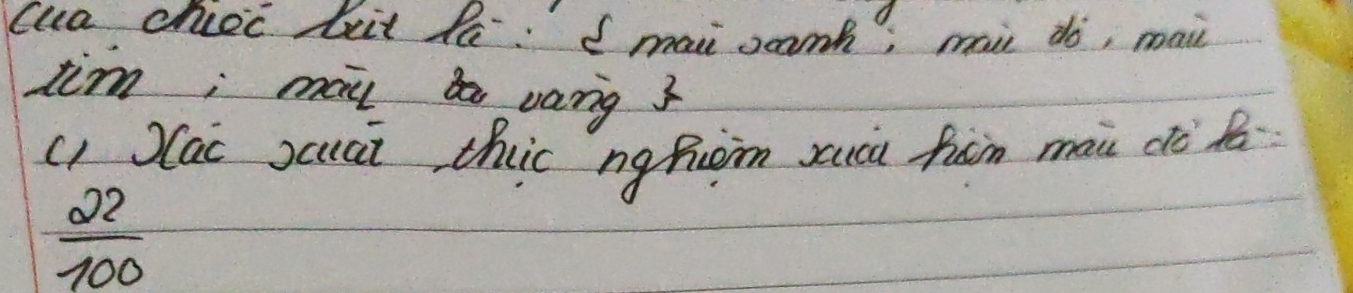 của chiếc bút là : { màu xanh ; màu đỏ ; màu
tím ; màu vàng }
c) Xác xuất thực nghiệm xuất hiện màu đỏ là :
22
100